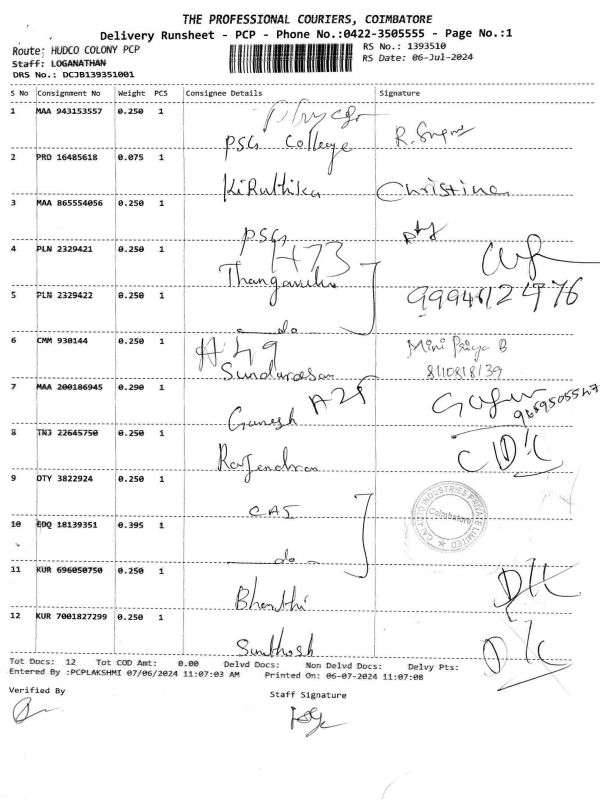 THE PROFESSIONAL COURIERS, COIMBATORE
Delivery Runsheet - PCP - Phone No.:0422-3505555 - Page No.:1
Route: HUDCO COLONY PCP
RS No.: 1393510
Staff: LOGANATHAN
RS Date: 06-Jul-2024
DRS No.: DCJB139351001
S No Consignment No Weight PCS Consignee Details Signature
1 MAA 943153557 0.250 1
PSG College
2 PRO 16485618 0.075 1
Kiruthika Christina
3 MAA 865554056 0.250 1
PSG
4 PLN 2329421 0.250 1
1473
Thangavelu
5 PLN 2329422 0.250 1
do
6 CMM 930144 0.250 1
A 49 Mini Priya B
Sundaresan 8110818139
7 MAA 200186945 0.290 1
Ganesh A25 9689505547
8 TNJ 22645750 0.250 1
Rajendran D/C
9 OTY 3822924 0.250 1
CAI
INDUSTRIES PRIVATE LIMITED
Coimbatore
10 EDQ 18139351 0.395 1
do
11 KUR 696050750 0.250 1
Bharathi D/C
12 KUR 7001827299 0.250 1
Santhosh D/C
Tot Docs: 12 Tot COD Amt: 0.00 Delvd Docs: Non Delvd Docs: Delvy Pts:
Entered By :PCPLAKSHMI 07/06/2024 11:07:03 AM Printed On: 06-07-2024 11:07:08
Verified By
Staff Signature